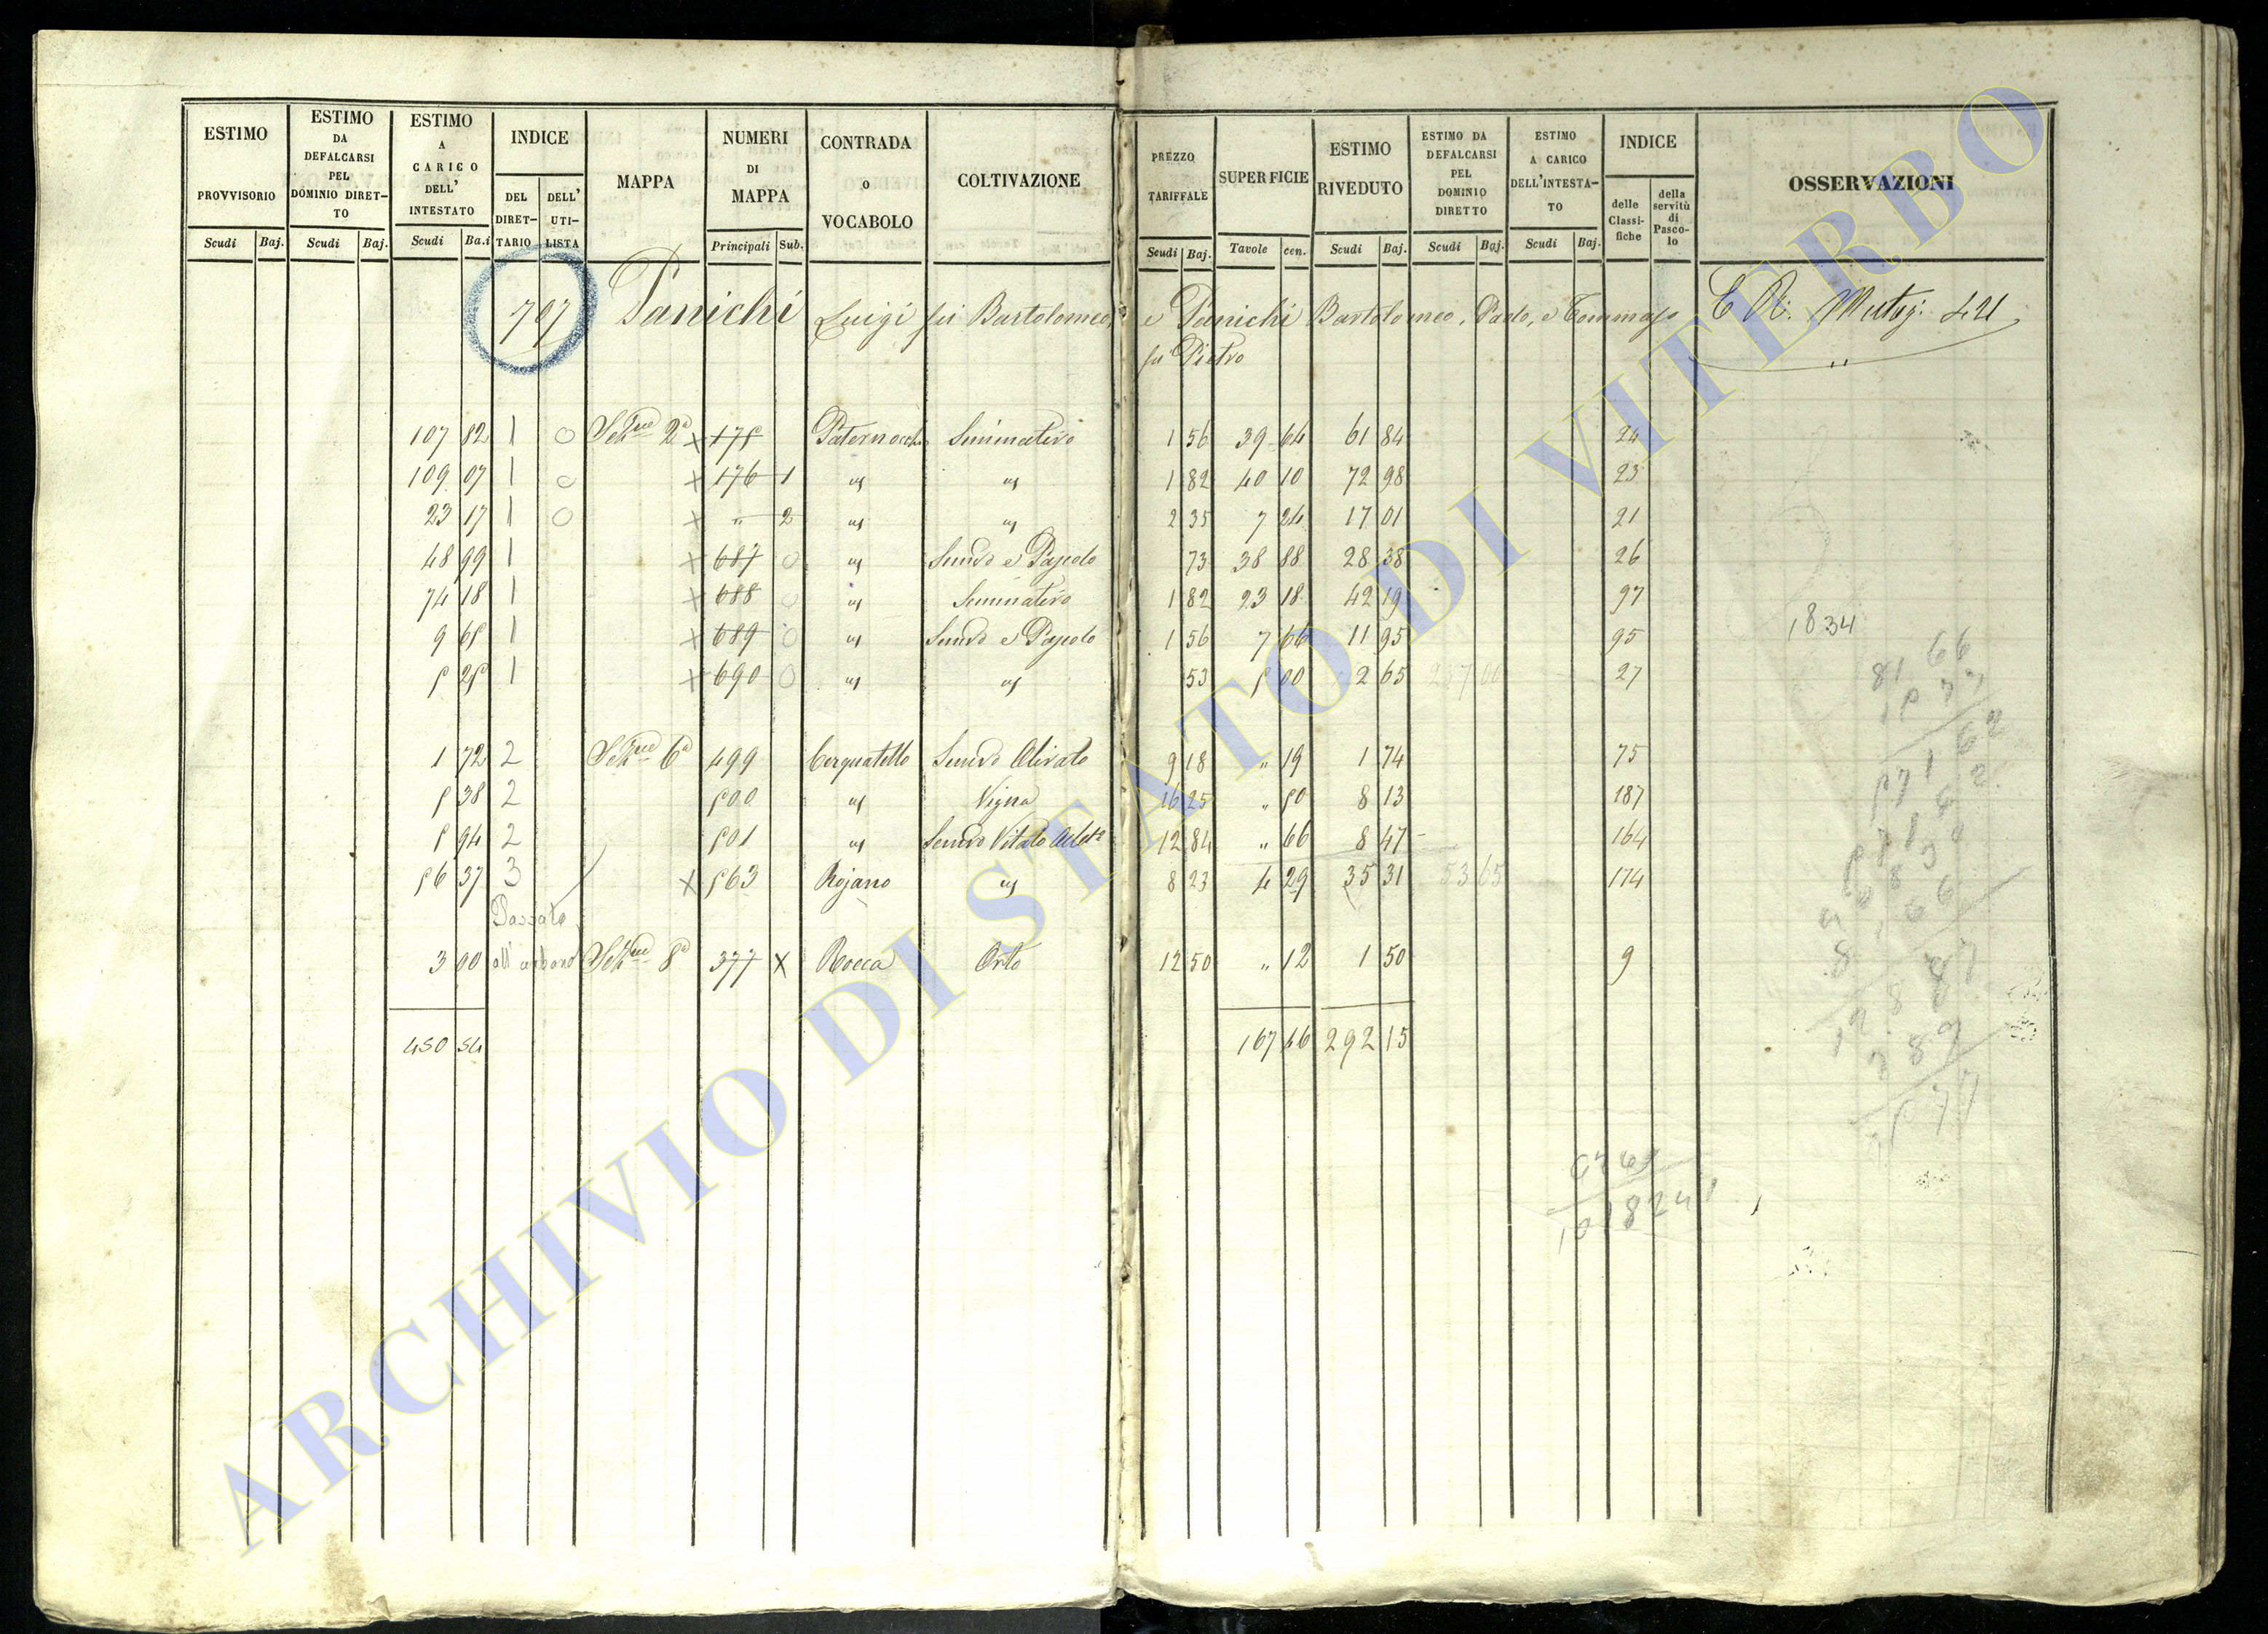 ESTIMO PROVVISORIO Scudi Baj.
ESTIMO DA DEFALCARSI PEL DOMINIO DIRETTO Scudi Baj.
ESTIMO A CARICO DELL' INTESTATO Scudi Ba.i
INDICE DEL DIRETTARIO DELL' UTILISTA
MAPPA
NUMERI DI MAPPA Principali Sub.
CONTRADA o VOCABOLO
COLTIVAZIONE
PREZZO TARIFFALE Scudi Baj.
SUPERFICIE Tavole cen.
ESTIMO RIVEDUTO Scudi Baj.
ESTIMO DA DEFALCARSI PEL DOMINIO DIRETTO Scudi Baj.
ESTIMO A CARICO DELL'INTESTATO Scudi Baj.
INDICE delle Classifiche della servitù di Pascolo
OSSERVAZIONI
707 Panichi Luigi fu Bartolomeo, e Panichi Bartolomeo, Paolo, e Tommaso
fu Pietro
107 82 1 0 Sez.ne 2a x 175 Paternocchi Seminativo 1 56 39 64 61 84 24
109 07 1 0 x 176 1 " " 1 82 40 10 72 98 23
23 17 1 0 x " 2 " " 2 35 7 24 17 01 21
48 99 1 x 687 0 " Semvo e Pascolo 73 38 88 28 38 26
74 18 1 x 688 0 " Seminativo 1 82 23 18 42 19 97
9 65 1 x 689 0 " Semvo e Pascolo 1 56 7 66 11 95 95
5 25 1 x 690 0 " " 53 5 00 2 65 27
1834
1 72 2 Sez.ne 6a 499 Cerquatello Semvo Olivato 9 18 " 19 1 74 75
5 38 2 500 " Vigna 16 25 " 50 8 13 187
5 94 2 501 " Semvo Vitato 12 84 " 66 8 47 164
56 37 3 x 563 Rojano " 8 23 4 29 35 31 53 65 174
Passato
3 00 all' urbano Sez.ne 8a 377 x Rocca Orto 12 50 " 12 1 50 9
450 54 167 66 292 15
ARCHIVIO DI STATO DI VITERBO